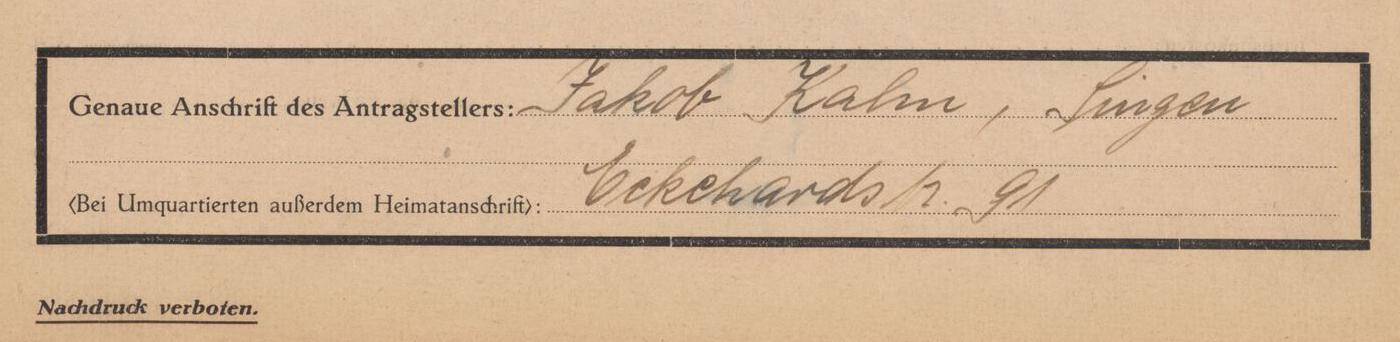 Genaue Anschrift des Antragstellers: Jakob Kalm, Singen
(Bei Umquartierten außerdem Heimatanschrift): Eckehardstr. 91
Nachdruck verboten.